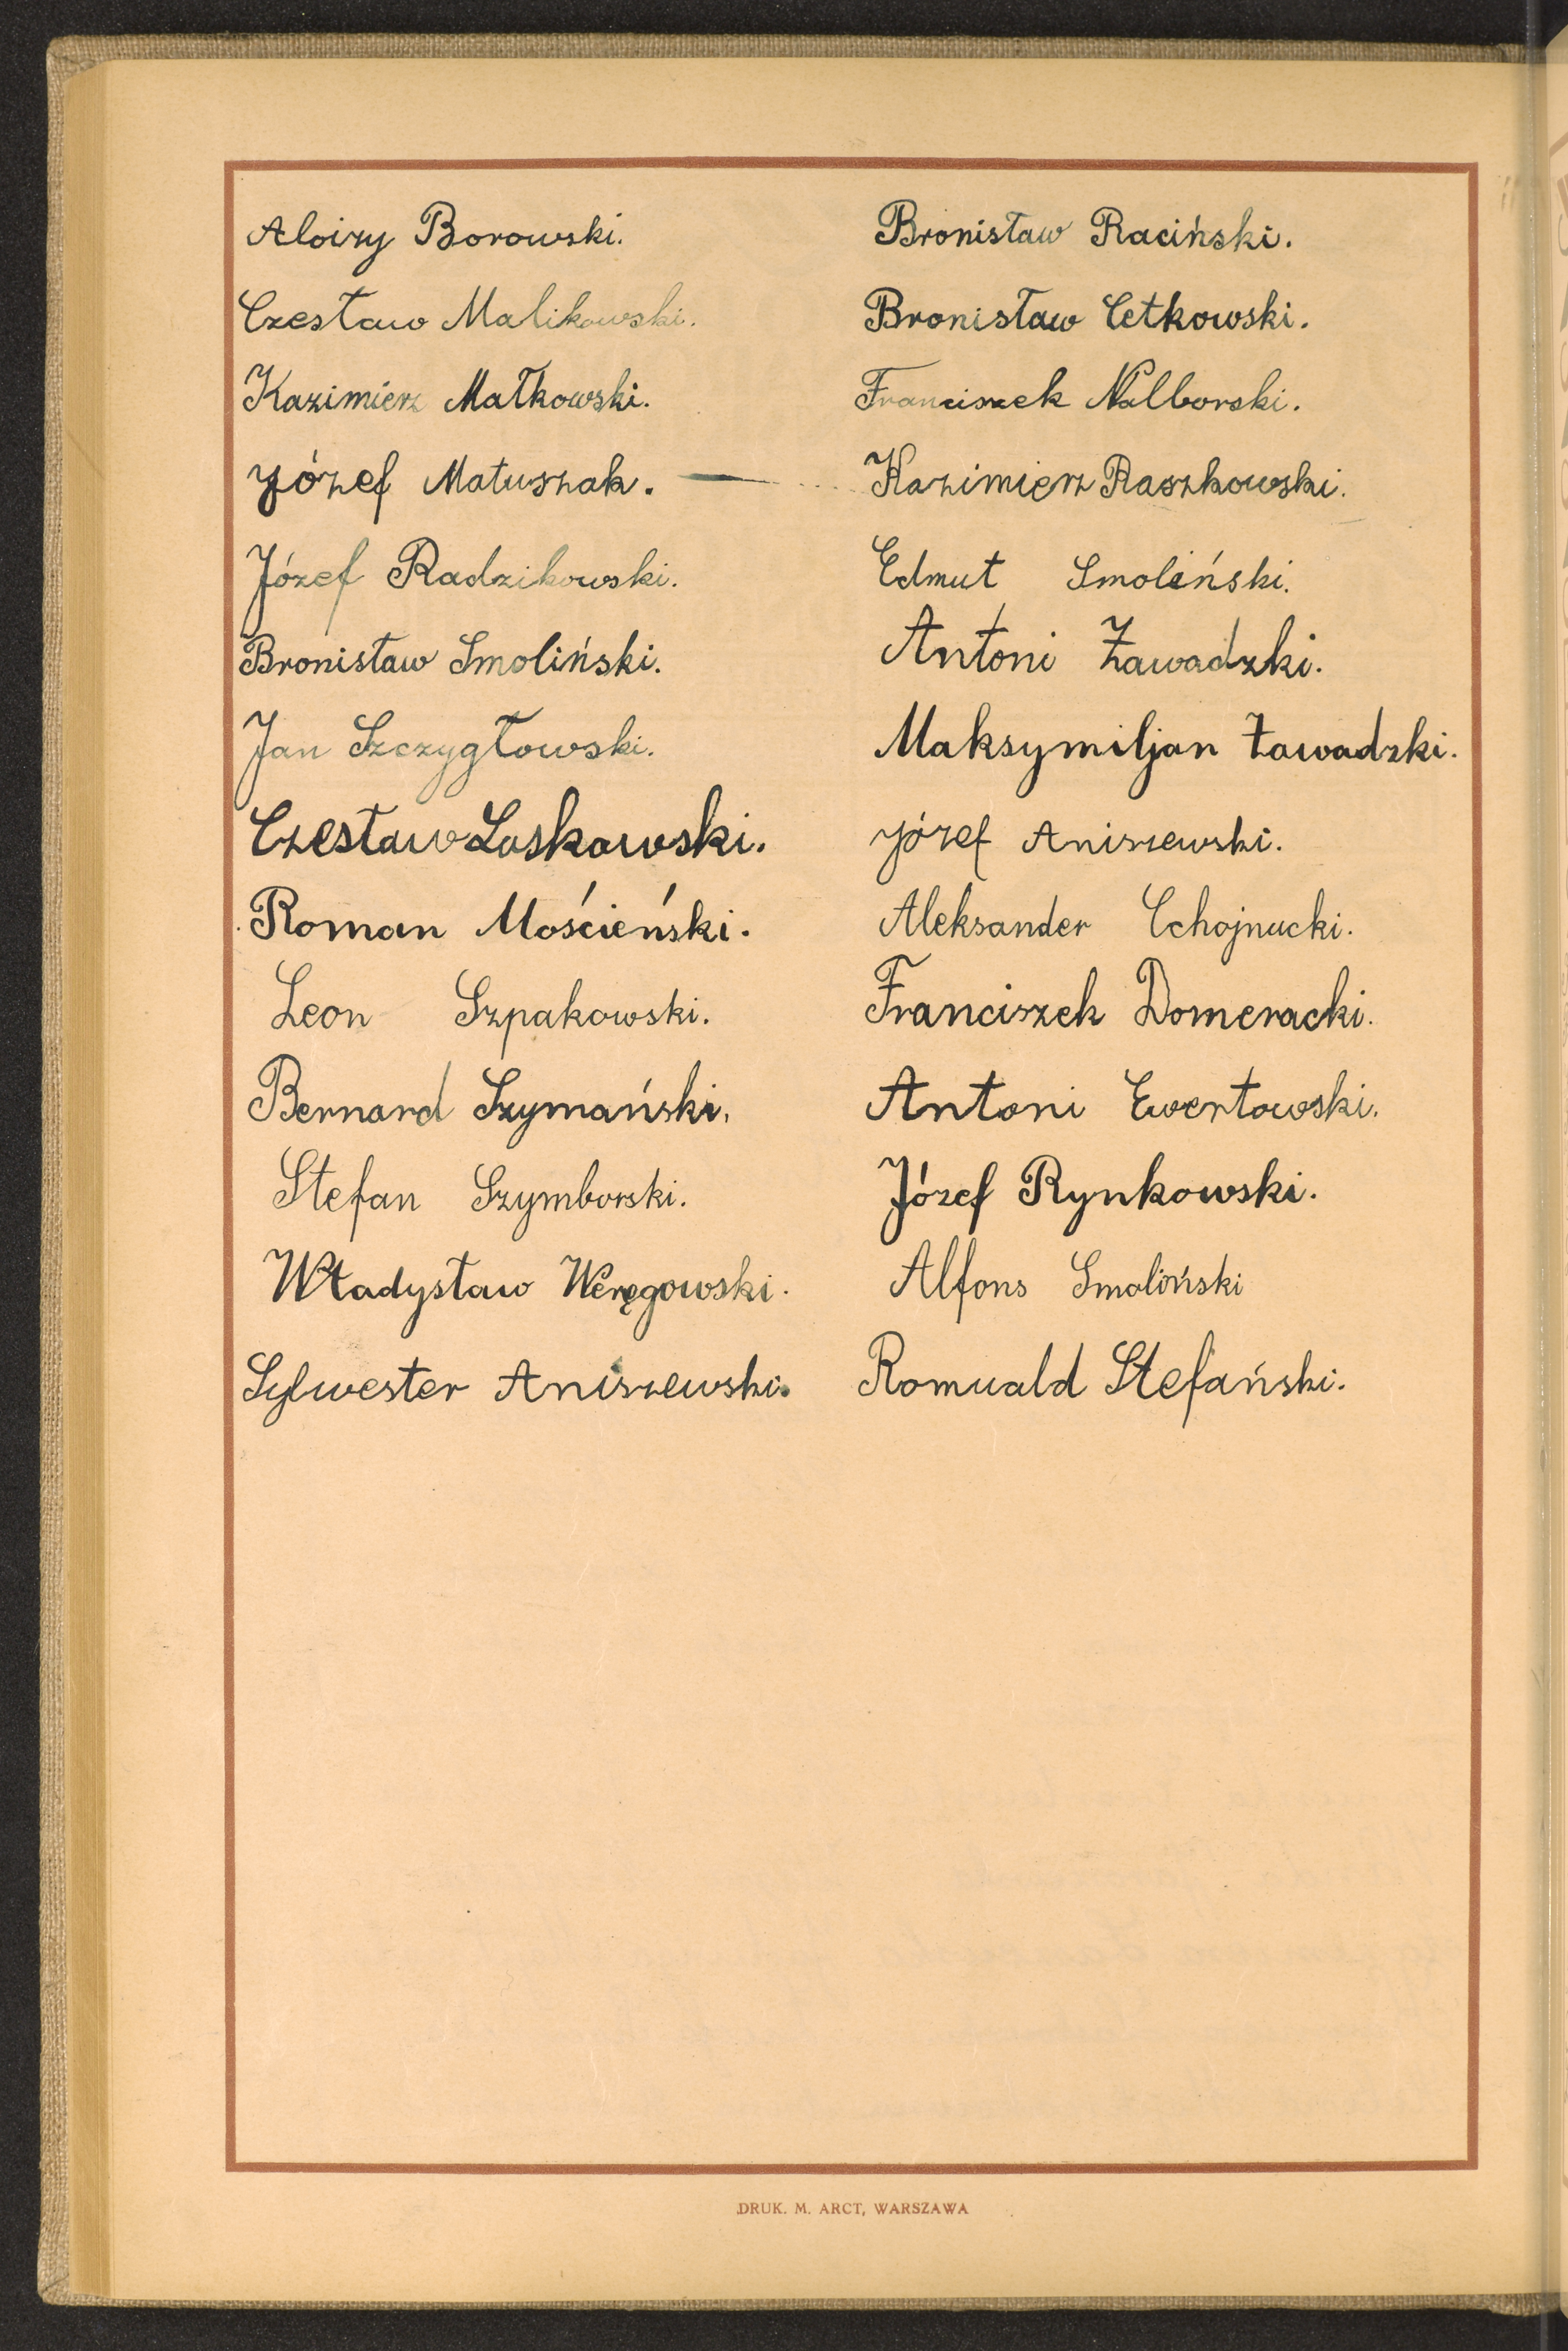 Aloizy Borowski.
Czesław Malikowski.
Kazimierz Małkowski.
Józef Matuszak.
Józef Radzikowski.
Bronisław Smoliński.
Jan Szczygłowski.
Czesław Laskowski.
Roman Mościeński.
Leon Szpakowski.
Bernard Szymański.
Stefan Szymborski.
Władysław Węręgowski.
Sylwester Aniszewski.
Bronisław Raciński.
Bronisław Cetkowski.
Franciszek Nalborski.
Kazimierz Raszkowski.
Edmut Smoliński.
Antoni Zawadzki.
Maksymiljan Zawadzki.
Józef Aniszewski.
Aleksander Cchojnucki.
Franciszek Domeracki.
Antoni Ewertowski.
Józef Rynkowski.
Alfons Smoliński
Romuald Stefański.
DRUK. M. ARCT, WARSZAWA